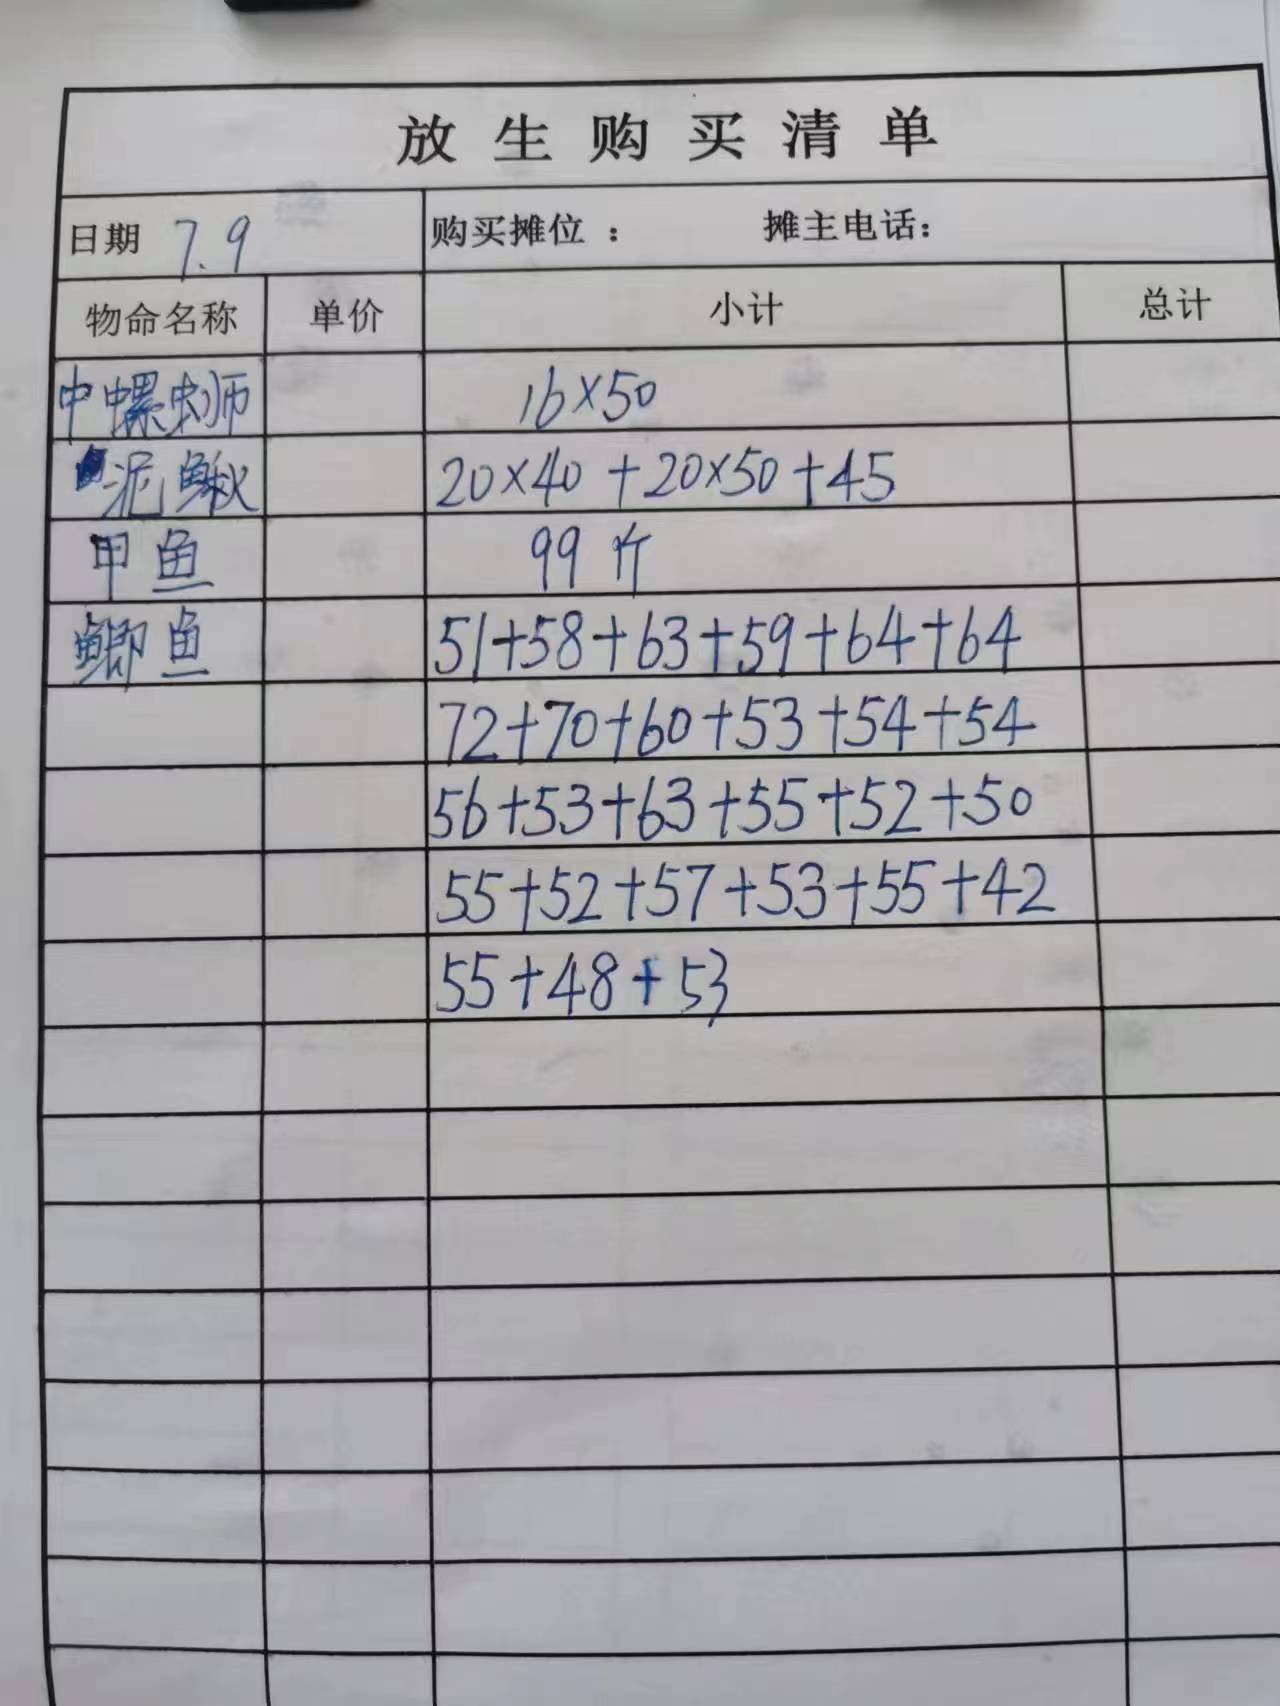 放生购买清单
日期 7.9 购买摊位： 摊主电话：
物命名称 单价 小计 总计
中螺蛳 16×50
泥鳅 20×40+20×50+45
甲鱼 99斤
鲫鱼 51+58+63+59+64+64
72+70+60+53+54+54
56+53+63+55+52+50
55+52+57+53+55+42
55+48+53